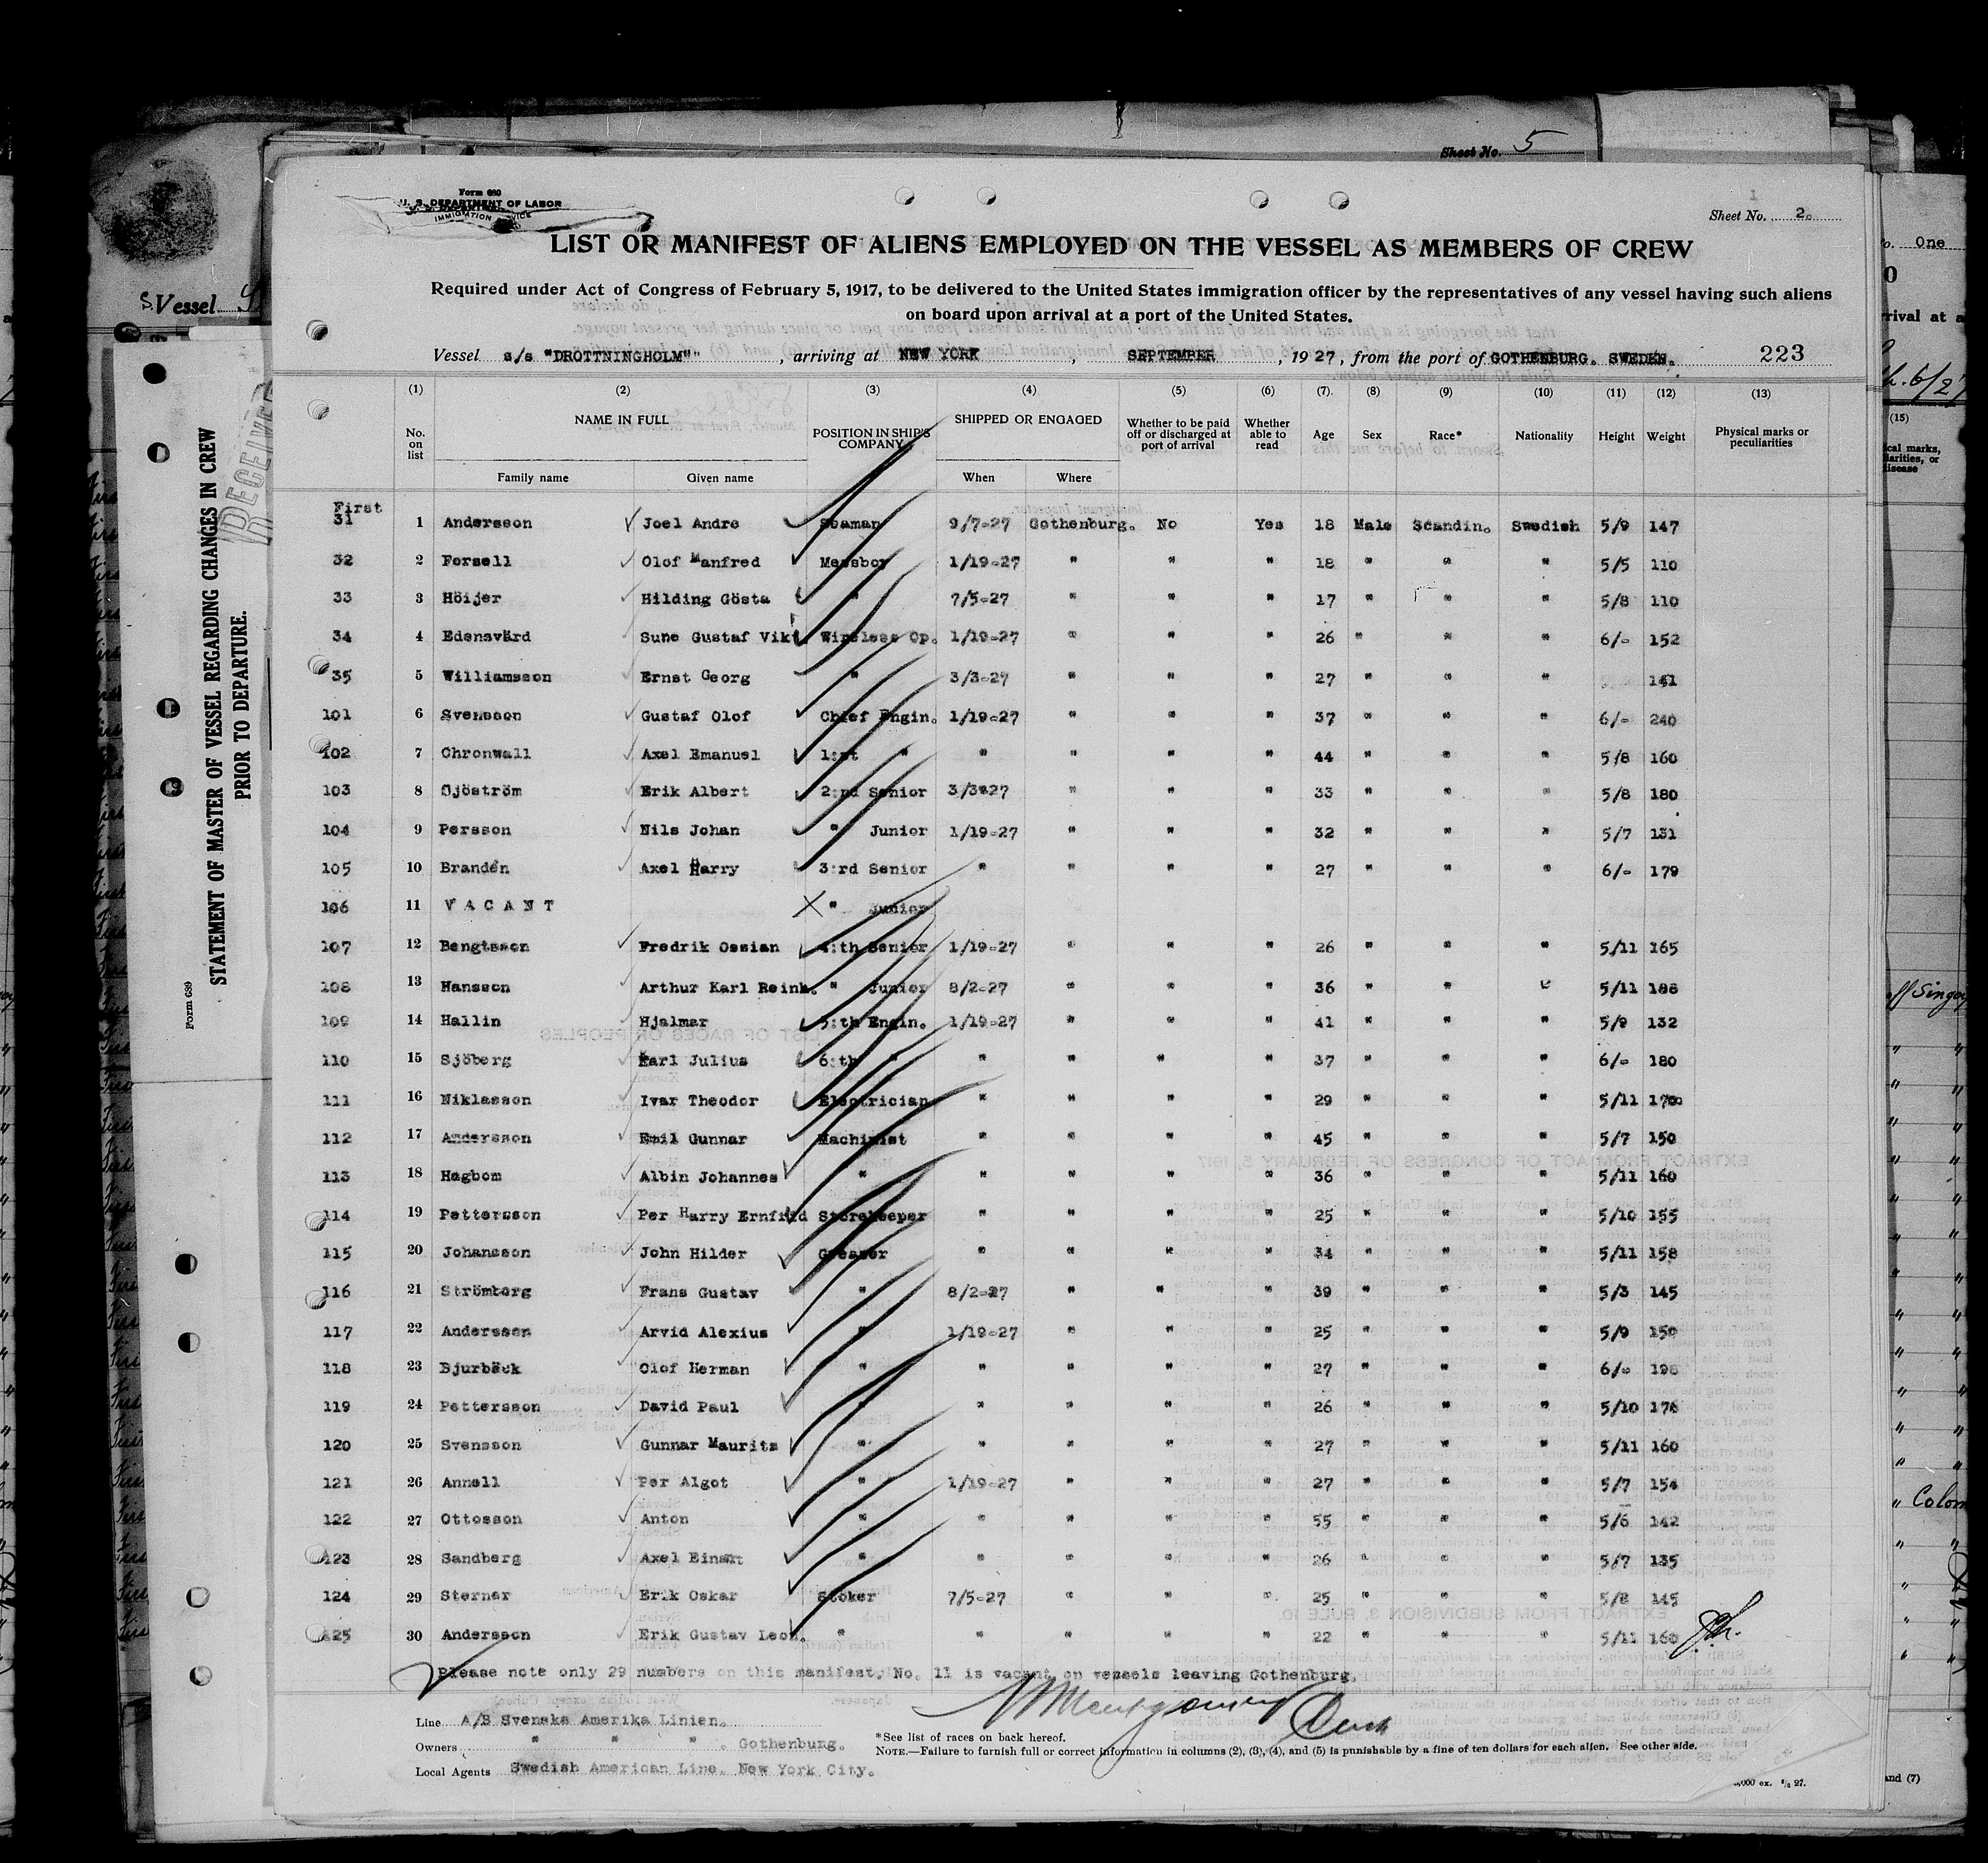 Sheet No. 5
Form 680
U. S. DEPARTMENT OF LABOR
IMMIGRATION SERVICE
Sheet No. 2.
LIST OR MANIFEST OF ALIENS EMPLOYED ON THE VESSEL AS MEMBERS OF CREW
Required under Act of Congress of February 5, 1917, to be delivered to the United States immigration officer by the representatives of any vessel having such aliens
on board upon arrival at a port of the United States.
Vessel s/s "DROTTNINGHOLM"", arriving at NEW YORK, SEPTEMBER, 1927, from the port of GOTHENBURG. SWEDEN. 223
(1) (2) (3) (4) (5) (6) (7) (8) (9) (10) (11) (12) (13)
No. on list NAME IN FULL Family name Given name POSITION IN SHIP'S COMPANY SHIPPED OR ENGAGED When Where Whether to be paid off or discharged at port of arrival Whether able to read Age Sex Race* Nationality Height Weight Physical marks or peculiarities
First
31 1 Andersson Joel Andre Seaman 9/7-27 Gothenburg. No Yes 18 Male Scandin. Swedish 5/9 147
32 2 Forsell Olof Manfred Messboy 1/19-27 " " " 18 " " " 5/5 110
33 3 Höijer Hilding Gösta " 7/5-27 " " " 17 " " " 5/8 110
34 4 Edensvärd Sune Gustaf Vikt. Wireless Op. 1/19-27 " " " 26 " " " 6/- 152
35 5 Williamsson Ernst Georg " 3/3-27 " " " 27 " " " 141
101 6 Svensson Gustaf Olof Chief Engin. 1/19-27 " " " 37 " " " 6/- 240
102 7 Chronwall Axel Emanuel 1:st " " " " " 44 " " " 5/8 160
103 8 Sjöström Erik Albert 2:nd Senior 3/3-27 " " " 33 " " " 5/8 180
104 9 Persson Nils Johan " Junior 1/19-27 " " " 32 " " " 5/7 131
105 10 Brandén Axel Harry 3:rd Senior " " " " 27 " " " 6/- 179
106 11 VACANT " Junior
107 12 Bengtsson Fredrik Ossian 4:th Senior 1/19-27 " " " 26 " " " 5/11 165
108 13 Hansson Arthur Karl Reinh. " Junior 8/2-27 " " " 36 " " " 5/11 188
109 14 Hallin Hjalmar 5:th Engin. 1/19-27 " " " 41 " " " 5/9 132
110 15 Sjöberg Karl Julius 6:th " " " " " 37 " " " 6/- 180
111 16 Niklasson Ivar Theodor Electrician " " " " 29 " " " 5/11 170
112 17 Andersson Emil Gunnar Machinist " " " " 45 " " " 5/7 150
113 18 Hagbom Albin Johannes " " " " " 36 " " " 5/11 160
114 19 Pettersson Per Harry Ernfrid Storekeeper " " " " 25 " " " 5/10 155
115 20 Johansson John Hilder Greaser " " " " 34 " " " 5/11 158
116 21 Strömberg Frans Gustav " 8/2-27 " " " 39 " " " 5/3 145
117 22 Andersson Arvid Alexius " 1/19-27 " " " 25 " " " 5/9 150
118 23 Bjurbäck Olof Herman " " " " " 27 " " " 6/- 198
119 24 Pettersson David Paul " " " " " 26 " " " 5/10 176
120 25 Svensson Gunnar Mauritz " " " " " 27 " " " 5/11 160
121 26 Annell Per Algot " 1/19-27 " " " 27 " " " 5/7 154
122 27 Ottosson Anton " " " " " 55 " " " 5/6 142
123 28 Sandberg Axel Einart " " " " " 26 " " " 5/7 135
124 29 Sterner Erik Oskar Stoker 7/5-27 " " " 25 " " " 5/8 145
125 30 Andersson Erik Gustav Leon. " " " " " 22 " " " 5/11 160
Please note only 29 numbers on this manifest, No. 11 is vacant on vessels leaving Gothenburg.
Line A/B Svenska Amerika Linien.
Owners " " " . Gothenburg.
Local Agents Swedish American Line. New York City.
*See list of races on back hereof.
NOTE.—Failure to furnish full or correct information in columns (2), (3), (4), and (5) is punishable by a fine of ten dollars for each alien. See other side.
S. Vessel
RECEIVED
STATEMENT OF MASTER OF VESSEL REGARDING CHANGES IN CREW
PRIOR TO DEPARTURE.
Form 689
One
(15)
and (7)